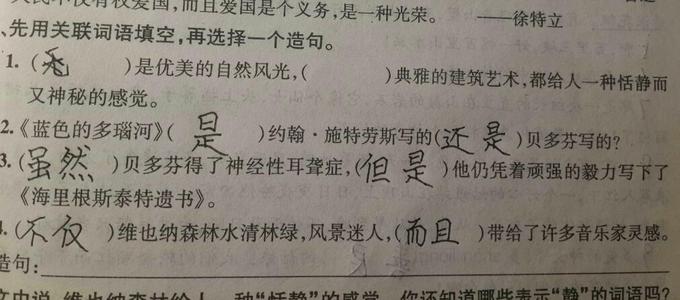 民不仅有权爱国,而且爱国是个义务,是一种光荣。 ——徐特立
、先用关联词语填空,再选择一个造句。
1. ( )是优美的自然风光,( )典雅的建筑艺术,都给人一种恬静而
又神秘的感觉。
2.《蓝色的多瑙河》(是)约翰·施特劳斯写的(还是)贝多芬写的?
3.(虽然)贝多芬得了神经性耳聋症,(但是)他仍凭着顽强的毅力写下了
《海里根斯泰特遗书》。
4.(不仅)维也纳森林水清林绿,风景迷人,(而且)带给了许多音乐家灵感。
造句:
文中说,维也纳森林给人一种“恬静”的感觉,你还知道哪些表示“静”的词语吗?